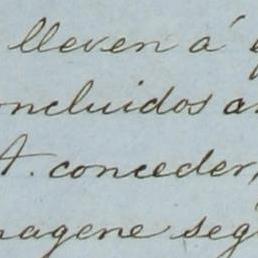 lleven á
oncluidos a
A. conceder,
nagene seg